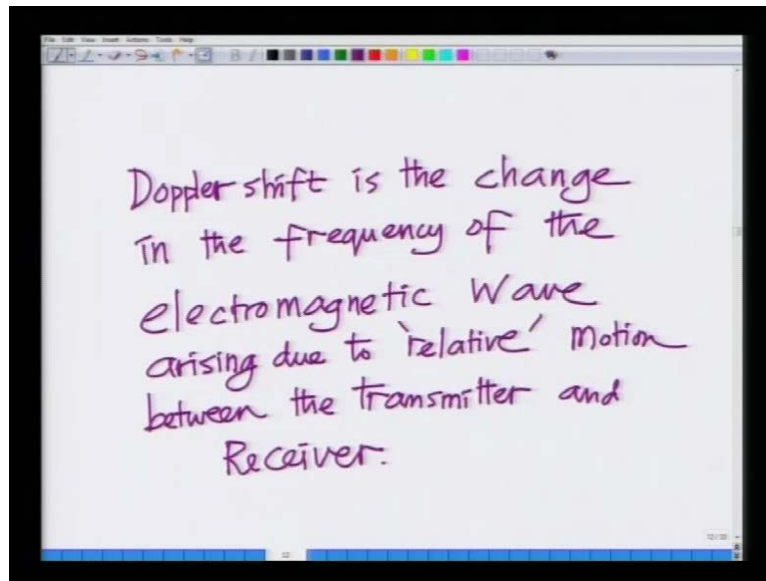 File Edit View Insert Actions Tools Help
Doppler shift is the change
in the frequency of the
electromagnetic Wave
arising due to 'relative' Motion
between the Transmitter and
Receiver.